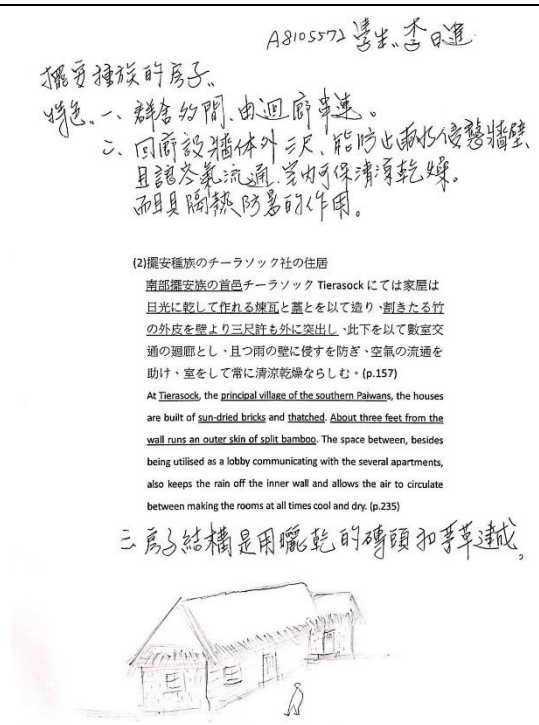 A8105572 學生:李日進
擺安種族的房子、
特色、一、群舍數間、由迴廊串連。
二、回廊設牆体外三尺、能防止雨水侵襲牆壁、
且讓空氣流通、室內可保清涼乾燥。
而且具隔熱防暑的作用。
(2)擺安種族のチーラソック社の住居
南部擺安族の首邑チーラソック Tierasock にては家屋は
日光に乾して作れる煉瓦と藁とを以て造り、割きたる竹
の外皮を壁より三尺許も外に突出し、此下を以て數室交
通の廻廊とし、且つ雨の壁に侵すを防ぎ、空氣の流通を
助け、室をして常に清涼乾燥ならしむ。(p.157)
At Tierasock, the principal village of the southern Paiwans, the houses
are built of sun-dried bricks and thatched. About three feet from the
wall runs an outer skin of split bamboo. The space between, besides
being utilised as a lobby communicating with the several apartments,
also keeps the rain off the inner wall and allows the air to circulate
between making the rooms at all times cool and dry. (p.235)
三、房子結構是用曬乾的磚頭和茅草建成。